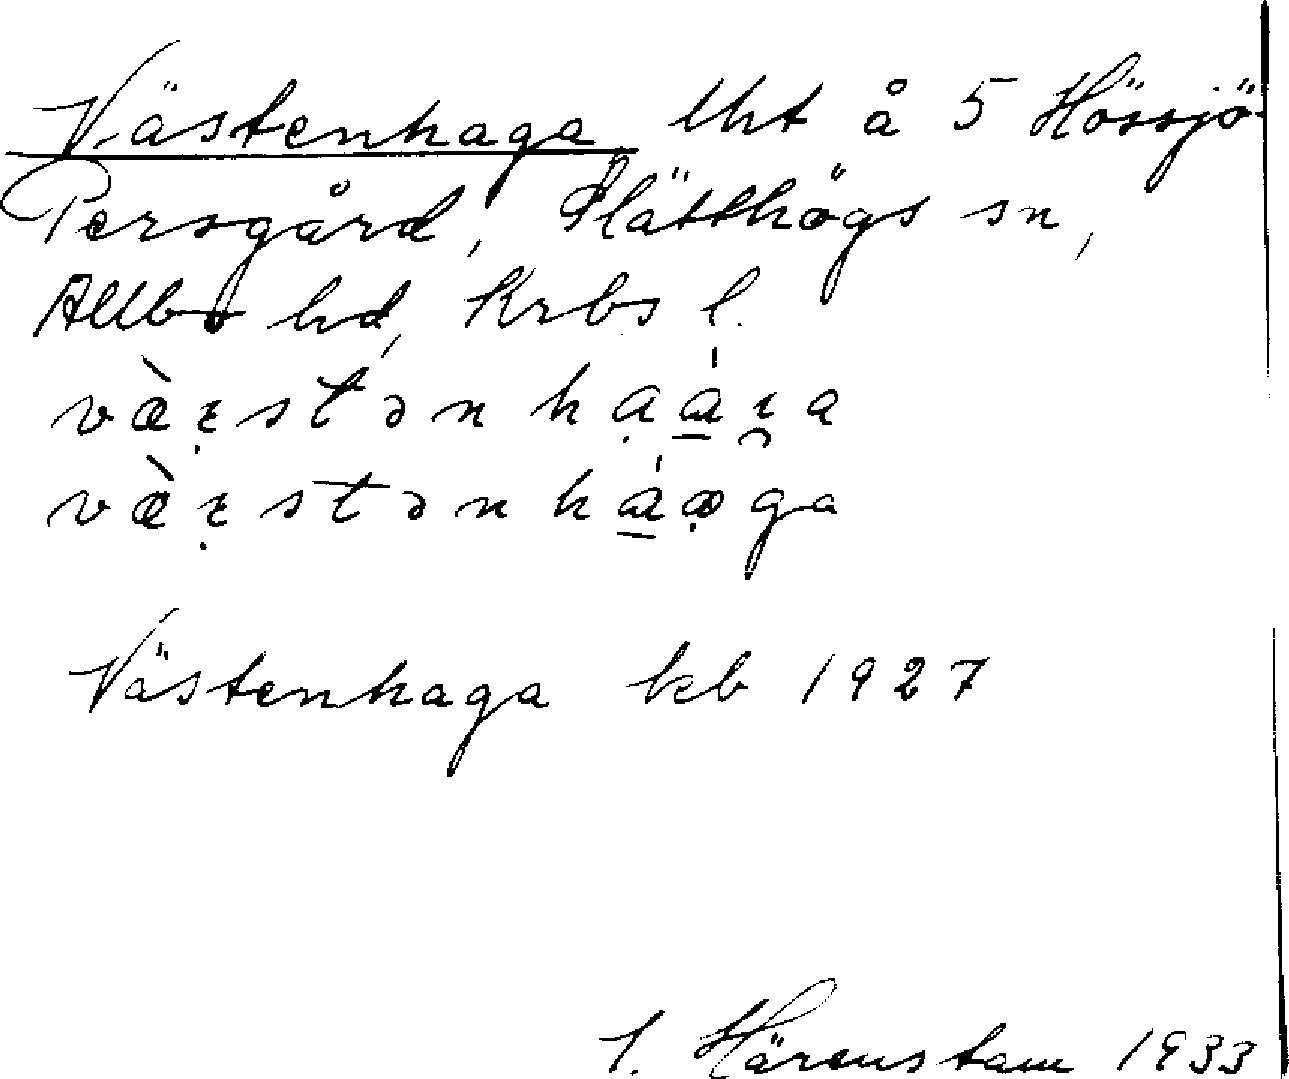 Västenhaga lht å 5 Hössjö
Persgård, Slätthögs sn,
Allbo hd, Krbs l.
væ̀ɛ̣stən hạáɛa
væ̀ɛ̣stən háạga
Västenhaga kb 1927
I. Härenstam 1933